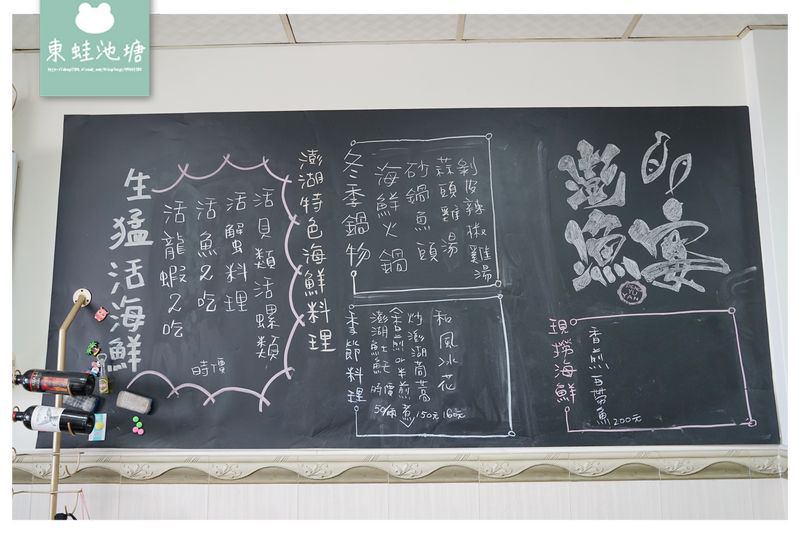 東蛙池塘
澎漁宴
YU YAN
現撈海鮮
香煎白帶魚 200元
剝皮辣椒雞湯
蒜頭雞湯
砂鍋魚頭
海鮮火鍋
冬季鍋物
和風冰花 160元
炒澎湖茼蒿 150元
季節料理
澎湖特色海鮮料理
活貝類活螺類
活蟹料理
活魚2吃
活龍蝦2吃
時價
生猛活海鮮